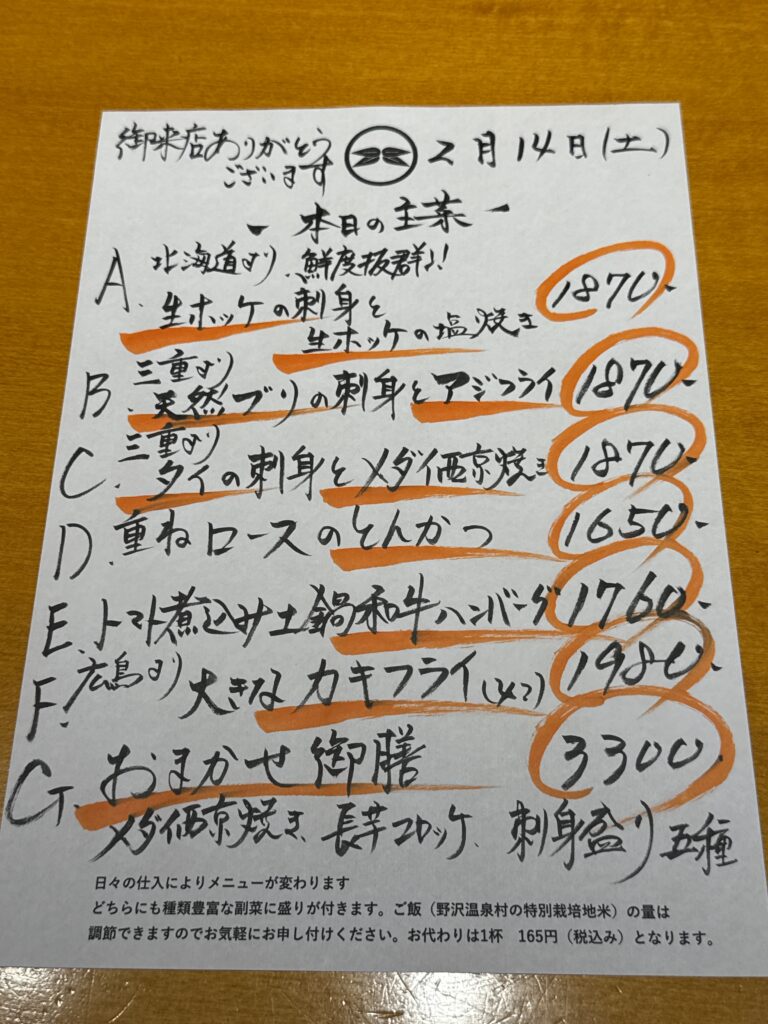 御来店ありがとう
ございます
2月14日(土)
本日の主菜
A. 北海道より、鮮度抜群♪!
生ホッケの刺身と
生ホッケの塩焼き 1870-
B. 三重より
天然ブリの刺身とアジフライ 1870-
C. 三重より
タイの刺身とメダイ西京焼き 1870-
D. 重ねロースのとんかつ 1650-
E. トマト煮込み土鍋和牛ハンバーグ 1760-
F. 広島より 大きなカキフライ(4つ) 1980-
G. おまかせ御膳 3300-
メダイ西京焼き、長芋コロッケ、刺身盛り五種
日々の仕入によりメニューが変わります
どちらにも種類豊富な副菜に盛りが付きます。ご飯(野沢温泉村の特別栽培地米)の量は
調節できますのでお気軽にお申し付けください。お代わりは1杯 165円(税込み)となります。